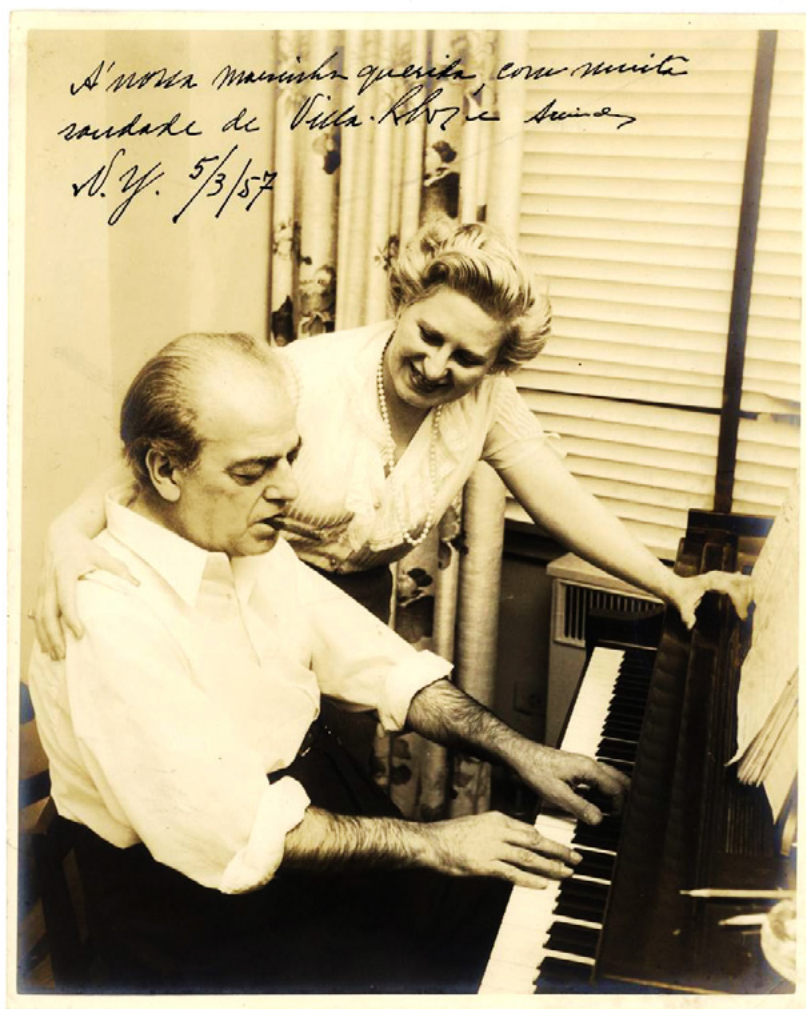 A' nossa mãesinha querida, com muita
saudade de Villa-Lobos e
N.Y. 5/3/57